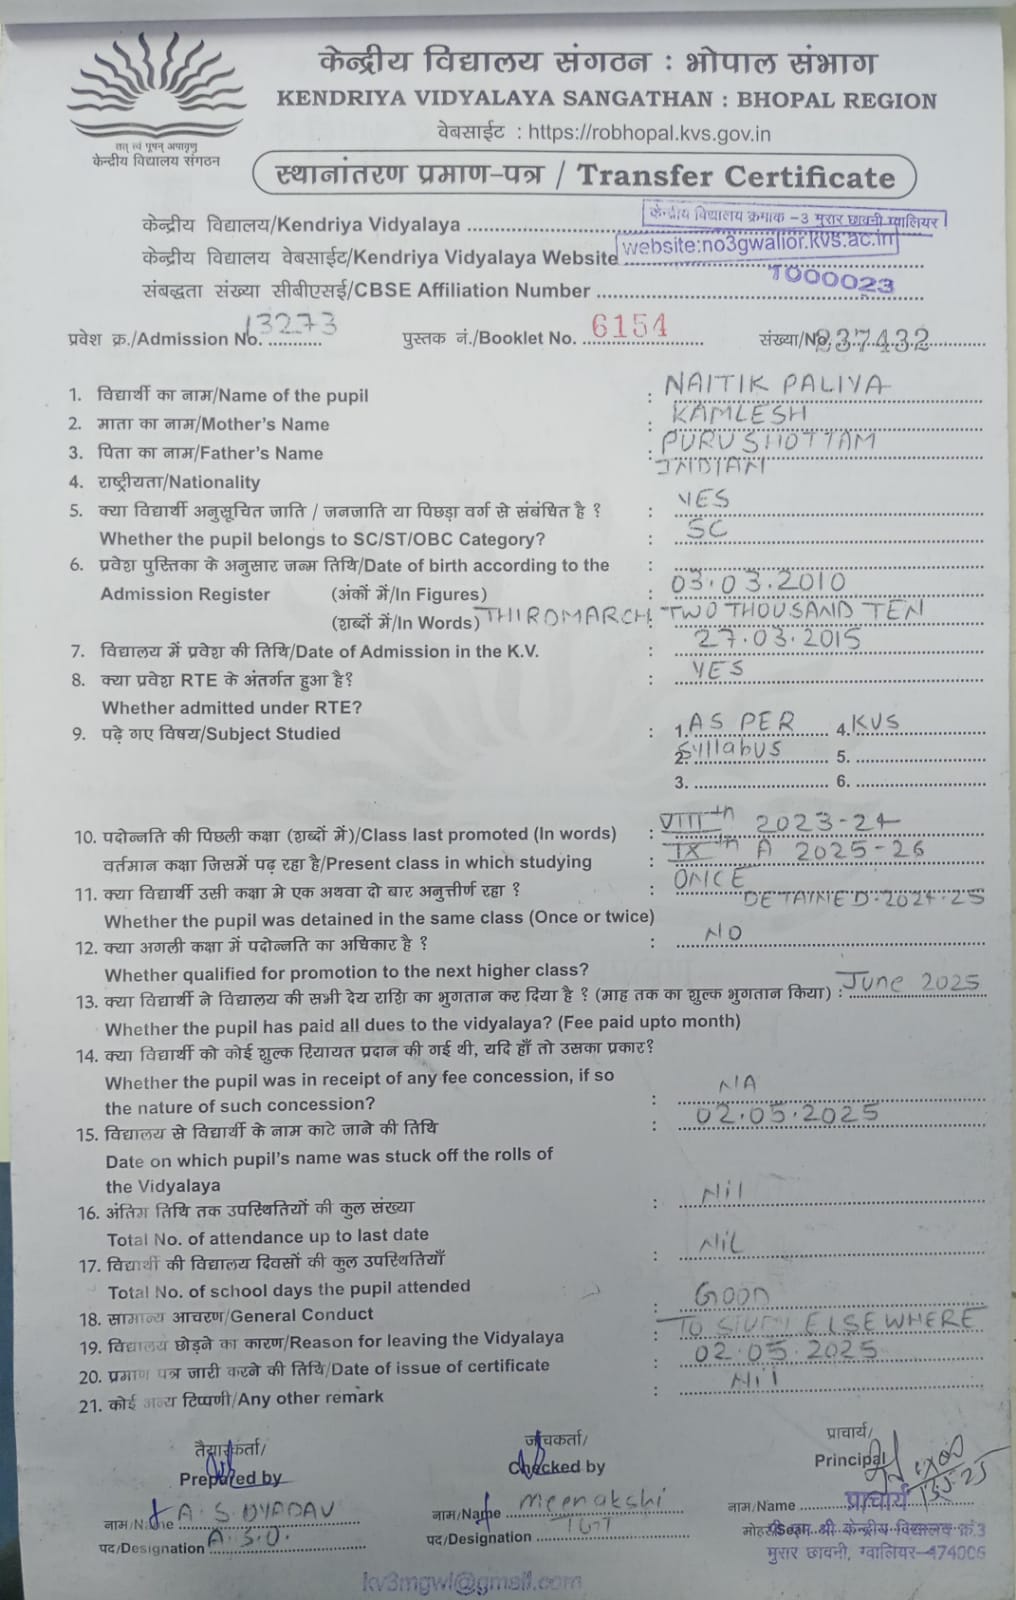 केन्द्रीय विद्यालय संगठन : भोपाल संभाग
KENDRIYA VIDYALAYA SANGATHAN : BHOPAL REGION
वेबसाईट : https://robhopal.kvs.gov.in
तत् त्वं पूषन् अपावृणु
केन्द्रीय विद्यालय संगठन
स्थानांतरण प्रमाण-पत्र / Transfer Certificate
केन्द्रीय विद्यालय/Kendriya Vidyalaya केन्द्रीय विद्यालय क्रमाक -3 मुरार छावनी ग्वालियर
केन्द्रीय विद्यालय वेबसाईट/Kendriya Vidyalaya Website website:no3gwalior.kvs.ac.in
संबद्धता संख्या सीबीएसई/CBSE Affiliation Number 1000023
प्रवेश क्र./Admission No. 13273 पुस्तक नं./Booklet No. 6154 संख्या/No. 237432
1. विद्यार्थी का नाम/Name of the pupil : NAITIK PALIYA
2. माता का नाम/Mother's Name : KAMLESH
3. पिता का नाम/Father's Name : PURUSHOTTAM
4. राष्ट्रीयता/Nationality INDIAN
5. क्या विद्यार्थी अनुसूचित जाति / जनजाति या पिछड़ा वर्ग से संबंधित है ? : YES
Whether the pupil belongs to SC/ST/OBC Category? : SC
6. प्रवेश पुस्तिका के अनुसार जन्म तिथि/Date of birth according to the :
Admission Register (अंकों में/In Figures) : 03.03.2010
(शब्दों में/In Words) THIRD MARCH TWO THOUSAND TEN
7. विद्यालय में प्रवेश की तिथि/Date of Admission in the K.V. : 27.03.2015
8. क्या प्रवेश RTE के अंतर्गत हुआ है? : YES
Whether admitted under RTE?
9. पढ़े गए विषय/Subject Studied : 1. AS PER 4. KVS
2. Syllabus 5.
3. 6.
10. पदोन्नति की पिछली कक्षा (शब्दों में)/Class last promoted (In words) : VIII th 2023-24
वर्तमान कक्षा जिसमें पढ़ रहा है/Present class in which studying : IX th A 2025-26
11. क्या विद्यार्थी उसी कक्षा मे एक अथवा दो बार अनुत्तीर्ण रहा ? : ONCE
DETAINED.2024-25
Whether the pupil was detained in the same class (Once or twice)
12. क्या अगली कक्षा में पदोन्नति का अधिकार है ? : NO
Whether qualified for promotion to the next higher class?
13. क्या विद्यार्थी ने विद्यालय की सभी देय राशि का भुगतान कर दिया है ? (माह तक का शुल्क भुगतान किया) : June 2025
Whether the pupil has paid all dues to the vidyalaya? (Fee paid upto month)
14. क्या विद्यार्थी को कोई शुल्क रियायत प्रदान की गई थी, यदि हाँ तो उसका प्रकार?
Whether the pupil was in receipt of any fee concession, if so
the nature of such concession? : N/A
15. विद्यालय से विद्यार्थी के नाम काटे जाने की तिथि : 02.05.2025
Date on which pupil's name was stuck off the rolls of
the Vidyalaya
16. अंतिम तिथि तक उपस्थितियों की कुल संख्या : Nil
Total No. of attendance up to last date
17. विद्यार्थी की विद्यालय दिवसों की कुल उपस्थितियाँ : Nil
Total No. of school days the pupil attended
18. सामान्य आचरण/General Conduct : GOOD
19. विद्यालय छोड़ने का कारण/Reason for leaving the Vidyalaya : TO STUDY ELSEWHERE
20. प्रमाण पत्र जारी करने की तिथि/Date of issue of certificate : 02.05.2025
21. कोई अन्य टिप्पणी/Any other remark : Nil
तैयारकर्ता/ जाँचकर्ता/ प्राचार्य/
Prepared by Checked by Principal
नाम/Name A.S. नाम/Name Meenakshi नाम/Name प्राचार्य
पद/Designation A.S.O. पद/Designation TGT मोहर/Seal पी.एम. श्री केन्द्रीय विद्यालय क्रं.3
मुरार छावनी, ग्वालियर-474006
kv3mgwl@gmail.com